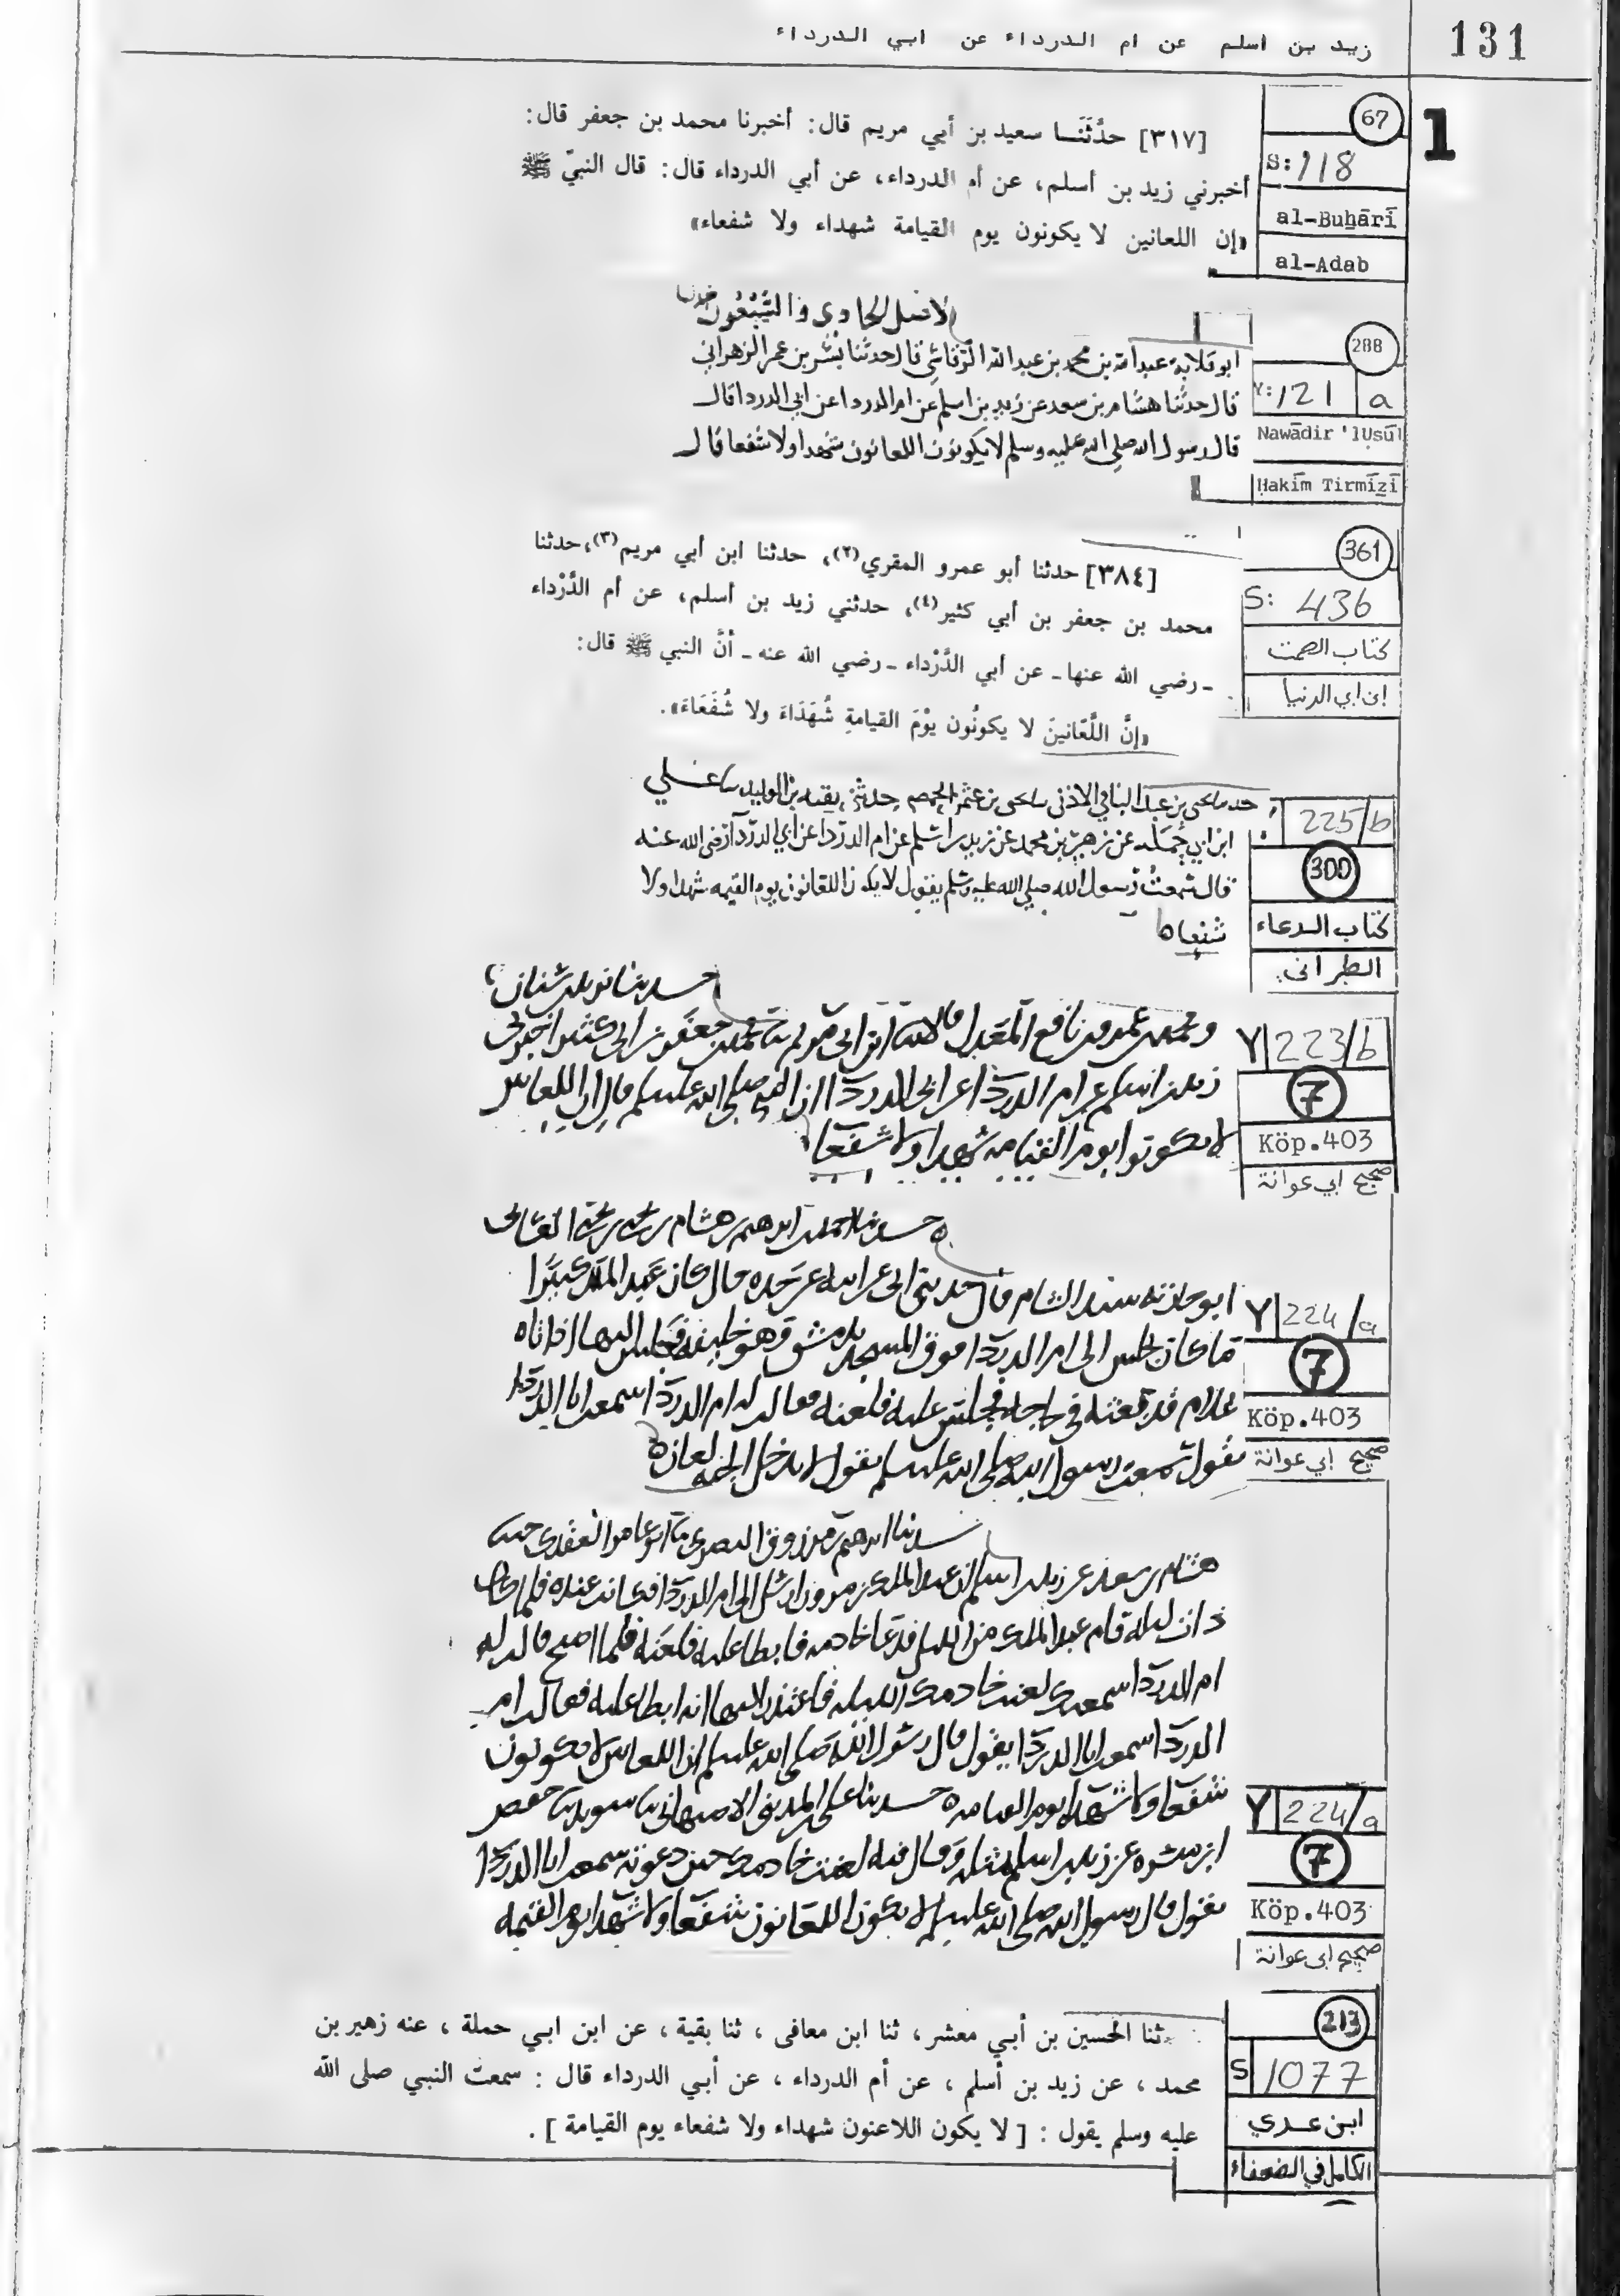 131
زيد بن اسلم عن ام الدرداء عن ابي الدرداء
1
67
S: 118
al-Buḫārī
al-Adab
[٣١٧] حدَّثَنَا سعيد بن أبي مريم قال: أخبرنا محمد بن جعفر قال:
أخبرني زيد بن أسلم، عن أم الدرداء، عن أبي الدرداء قال: قال النبيّ ﷺ
«إن اللعانين لا يكونون يوم القيامة شهداء ولا شفعاء»
288
Y: 121 a
Nawādir 'lUṣūl
Ḥakīm Tirmīzī
الاصل الحادي والتسعون
ابو قلابة عبد الله بن محمد بن عبد الله الرقاشي قال حدثنا بشر بن عمر الزهراني
قال حدثنا هشام بن سعد عن زيد بن اسلم عن ام الدردا عن ابي الدردا قال
قال رسول الله صلى الله عليه وسلم لا يكونون اللعانون شهدا ولا شفعا قال
361
S: 436
كتاب الصمت
ابن ابي الدنيا
[٣٨٤] حدثنا أبو عمرو المقري(٢)، حدثنا ابن أبي مريم(٣)، حدثنا
محمد بن جعفر بن أبي كثير(٤)، حدثني زيد بن أسلم، عن أم الدَّرْداء
- رضي الله عنها - عن أبي الدَّرْداء - رضي الله عنه - أنَّ النبي ﷺ قال:
«إنَّ اللَّعّانينَ لا يكونُون يوْمَ القيامةِ شُهَدَاءَ ولا شُفَعَاءَ».
225/b
300
كتاب الدعاء
الطبراني
بن عبد الباقي الاذني بن عثمن الحمصي حدثني بقيه بن الوليد
ابن ابي جملة عن زهير بن محمد عن زيد بن اسلم عن ام الدردا عن ابي الدردآ رضى الله عنه
قال سمعتُ رسول الله صلي الله عليه وسلم يقول لا يكون اللعانون يوم القيمه شهدا ولا
شفعا
Y 223/b
7
Köp.403
صحيح ابي عوانة
حدثنا
ومحمد بن عمرو بن نافع المعدل قالا ثنا ابن ابي مريم ثنا محمد بن جعفر بن ابي كثير اخبرني
زيد بن اسلم عن ام الدردا عن ابي الدردا ان النبي صلى الله عليه وسلم قال ان اللعانين
لا يكونوا يوم القيامه شهدا ولا شفعا
Y 224/a
7
Köp.403
صحيح ابي عوانة
حدثنا احمد بن ابرهيم بن هشام بن يحيى بن يحيى الغساني
ابو حارثه سيد الشام قال حدثني ابي عن ابيه عن جده قال كان عبد الملك كثيرا
ما كان يجلس الى ام الدردا موخر المسجد بدمشق وهو خليفه فجلس اليها اذ اتاه
غلام قد بعثه في حاجه فحبس عليه فلعنه فقالت له ام الدردا سمعت ابا الدردا
يقول سمعت رسول الله صلى الله عليه وسلم يقول لا يدخل الجنه لعان
حدثنا ابرهيم بن مرزوق البصري ثنا ابو عامر العقدي
هشام بن سعد عن زيد بن اسلم ان عبد الملك بن مروان ارسل الى ام الدردا فكانت عنده فلما كان
ذات ليله قام عبد الملك من الليل فدعا خادمه فابطا عليه فلعنه فلما اصبح قالت له
ام الدردا سمعتك لعنت خادمك الليله فاعتذر اليها انه ابطا عليه فقالت ام
الدردا سمعت ابا الدردا يقول قال رسول الله صلى الله عليه وسلم ان اللعانين لا يكونون
شفعا ولا شهدا يوم القيامه حدثنا علي المديني الاصبهاني ثنا سويد ثنا حفص
ابن ميسره عن زيد بن اسلم مثله وقال فيه لعنت خادمك حين دعوته سمعت ابا الدردا
يقول قال رسول الله صلى الله عليه وسلم لا يكون اللعانون شفعا ولا شهدا يوم القيمه
Y 224/a
7
Köp.403
صحيح ابي عوانة
213
S 1077
ابن عدي
الكامل في الضعفاء
ثنا الحسين بن أبي معشر ، ثنا ابن معافى ، ثنا بقية ، عن ابن ابي حملة ، عنه زهير بن
محمد ، عن زيد بن أسلم ، عن أم الدرداء ، عن أبي الدرداء قال : سمعت النبي صلى الله
عليه وسلم يقول : [ لا يكون اللاعنون شهداء ولا شفعاء يوم القيامة ] .